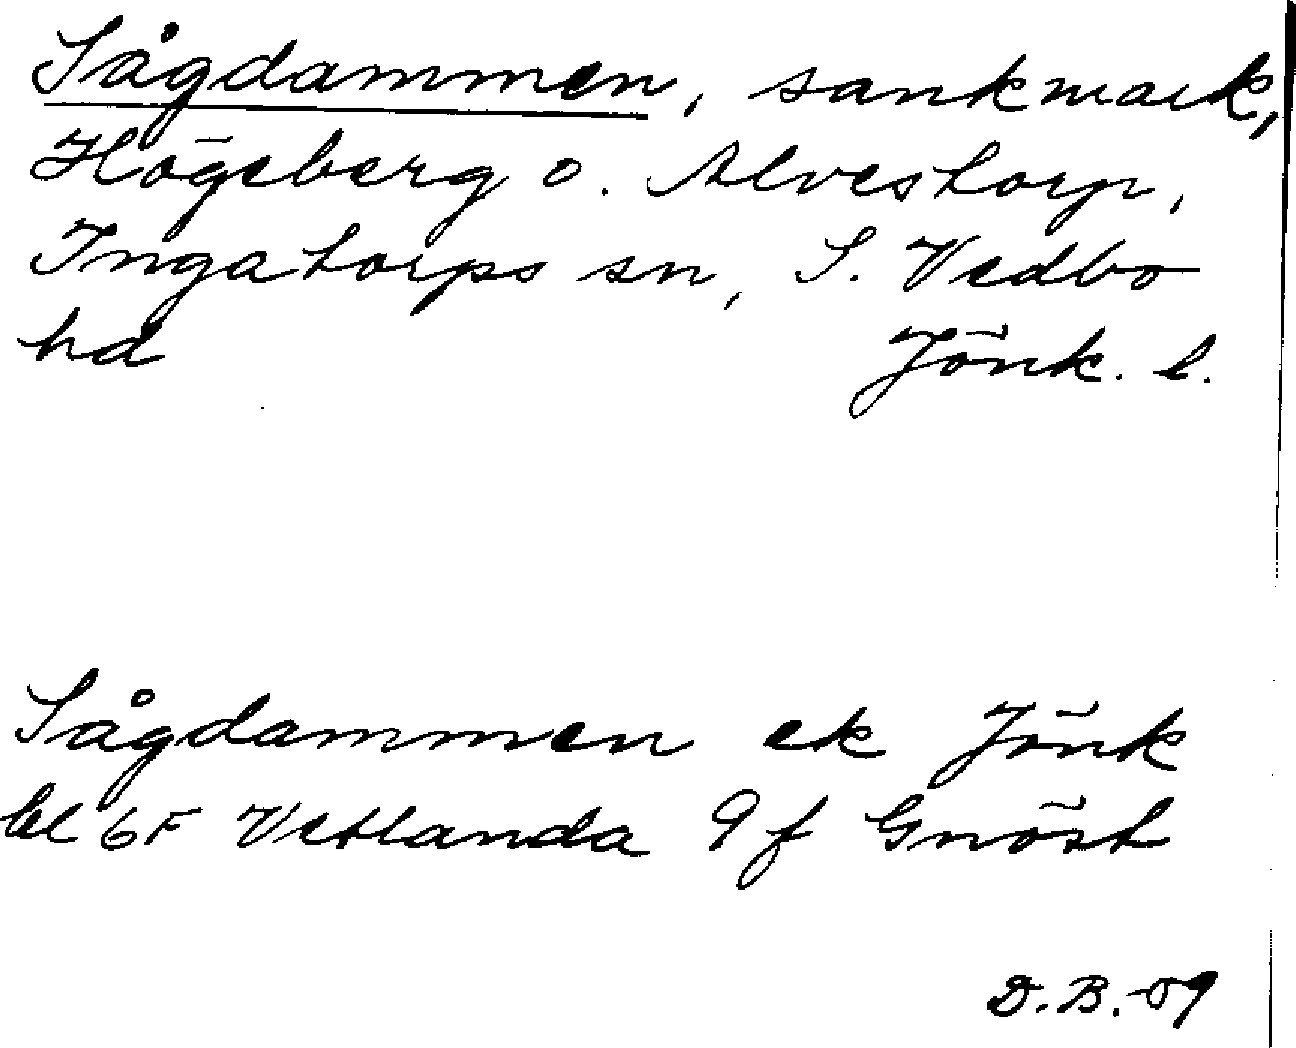 Sågdammen, sankmark,
Högeberg o. Alvestorp,
Ingatorps sn, S. Vedbo
hd Jönk. l.
Sågdammen ek Jönk
bl 6F Vetlanda 9f Gnöst
D.B.-09